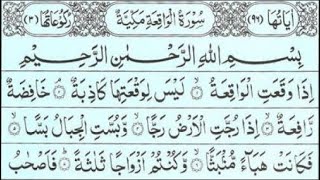 اٰيَاتُهَا (٩٦) سُوْرَةُ الْوَاقِعَةِ مَكِّيَّةٌ رُكُوْعَاتُهَا (٣)
بِسْمِ اللّٰهِ الرَّحْمٰنِ الرَّحِيْمِ
اِذَا وَقَعَتِ الْوَاقِعَةُ ۙ‏ ۝١ لَيْسَ لِوَقْعَتِهَا كَاذِبَةٌ ۘ‏ ۝٢ خَافِضَةٌ
رَّافِعَةٌ ۙ‏ ۝٣ اِذَا رُجَّتِ الْاَرْضُ رَجًّا ۙ‏ ۝٤ وَّبُسَّتِ الْجِبَالُ بَسًّا ۙ‏ ۝٥
فَكَانَتْ هَبَآءً مُّنْۢبَثًّا ۙ‏ ۝٦ وَّكُنْتُمْ اَزْوَاجًا ثَلٰثَةً ؕ‏ ۝٧ فَاَصْحٰبُ